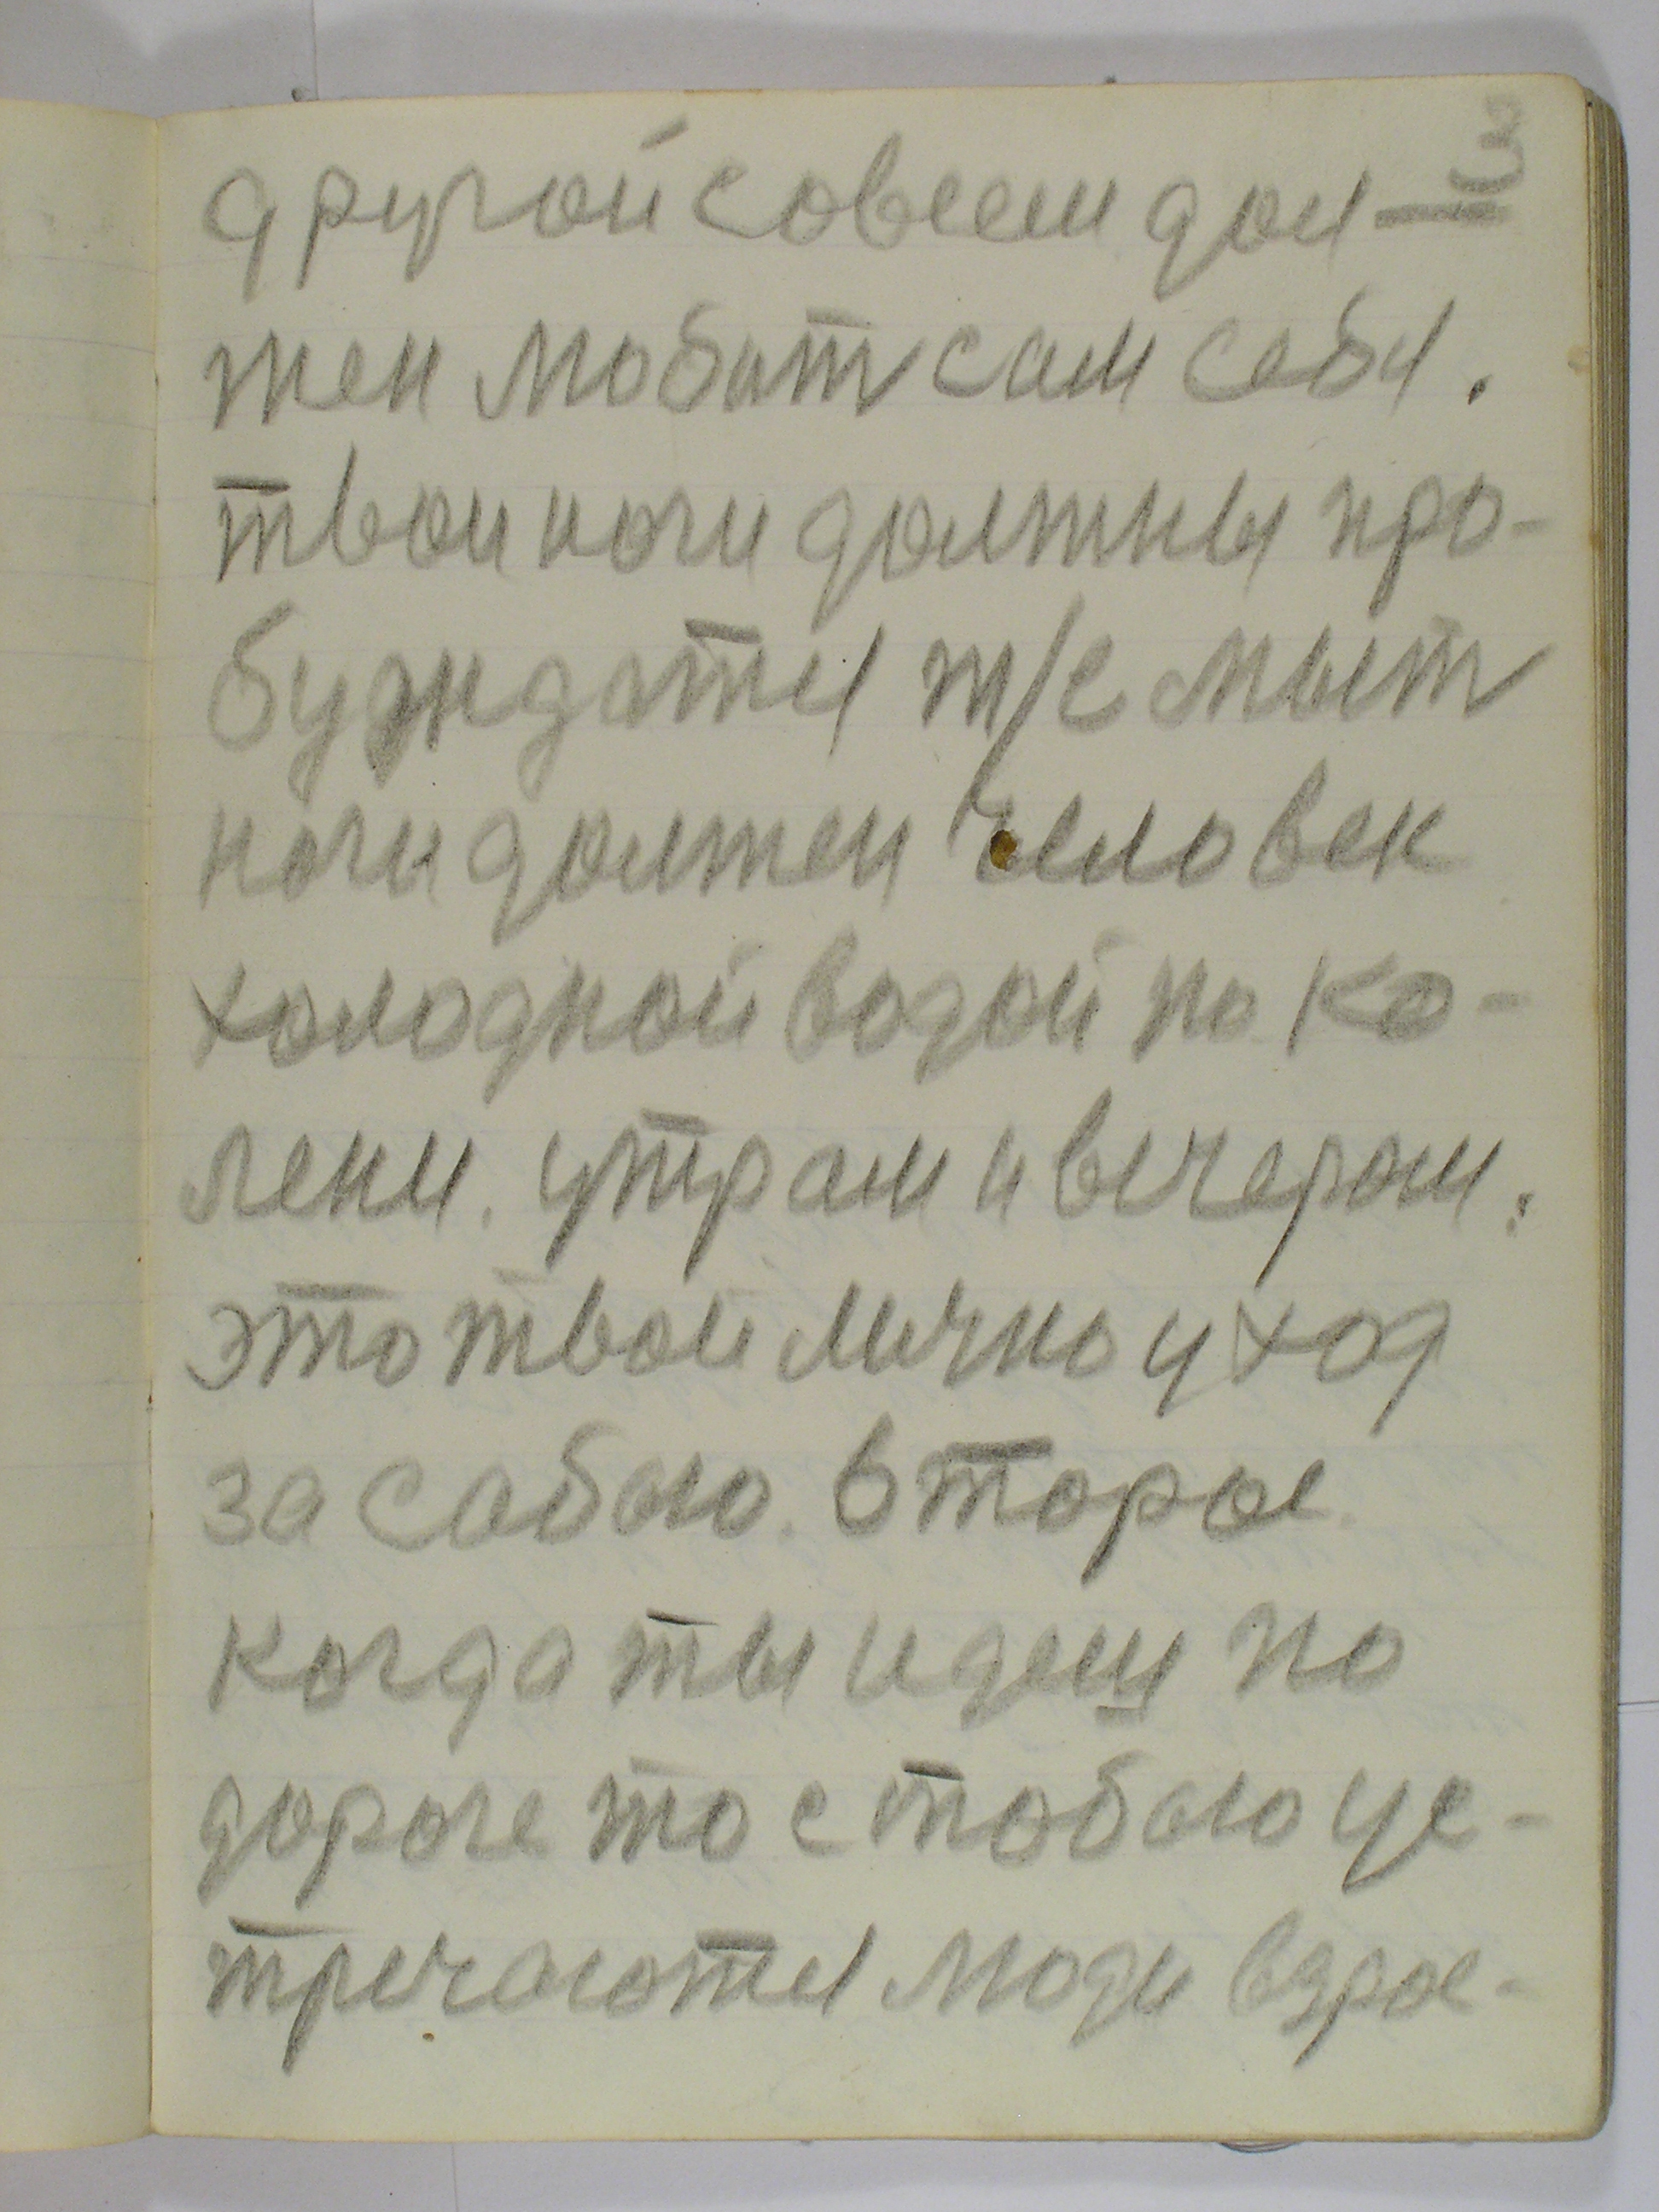 3
другой совсем дол-
жен любит сам себя.
твои ноги должны про-
буждатся т/е мыт
ноги должен человек
холодной водой по ко-
лени. утрам и вечером.
это твой лично уход
за сабою. Второе.
когда ты идеш по
дороге то с тобою ус-
тречаются люди взрос-